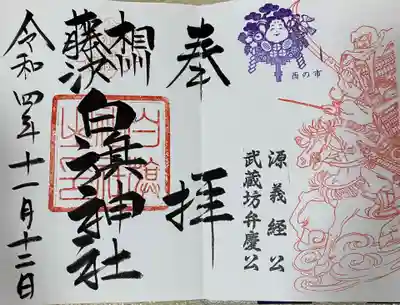 酉の市
源義経公
武蔵坊弁慶公
奉拝
相州
藤沢
白旗神社
令和四年十一月十二日